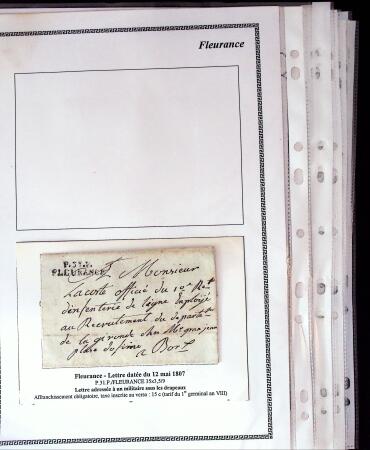 Fleurance
P.31.P.
FLEURANCE
Monsieur
Lacoste officié du 10e Rt
d'enfenterie de ligne Employé
au Recrutement du departe
de la gironde chez Mr
place
a Bord
Fleurance - Lettre datée du 12 mai 1807
P.31.P./FLEURANCE 35x3,5/9
Lettre adressée à un militaire sous les drapeaux
Affranchissement obligatoire, taxe inscrite au verso : 15 c (tarif du 1er germinal an VIII)